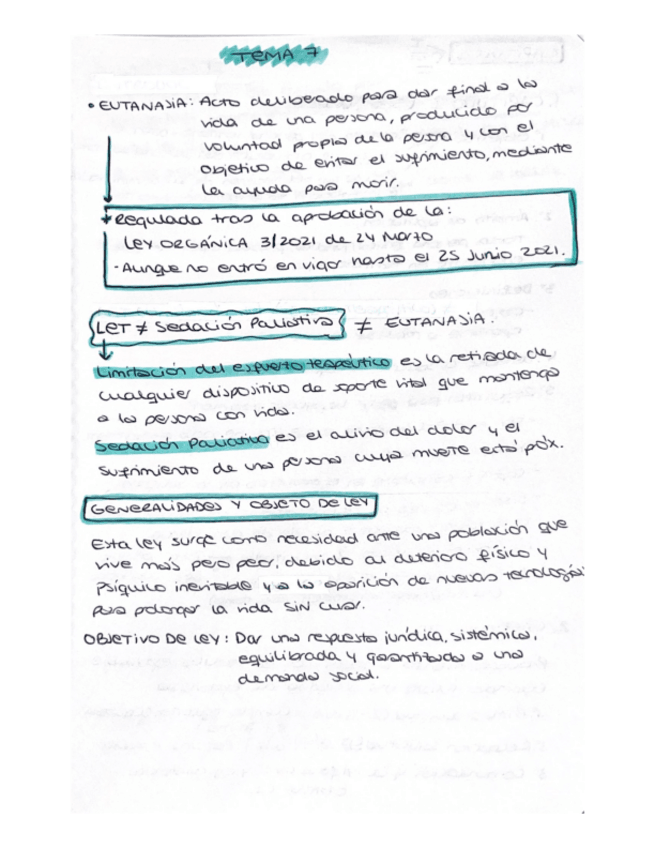 TEMA 7
• EUTANASIA: Acto deliberado para dar final a la
vida de una persona, producido por
voluntad propia de la persona y con el
objetivo de evitar el sufrimiento, mediante
la ayuda para morir.
Regulada tras la aprobación de la:
LEY ORGÁNICA 3/2021 de 24 Marzo
- Aunque no entró en vigor hasta el 25 Junio 2021.
LET ≠ Sedación Paliativa ≠ EUTANASIA.
Limitación del esfuerzo terapéutico es la retirada de
cualquier dispositivo de soporte vital que mantenga
a la persona con vida.
Sedación Paliativa es el alivio del dolor y el
sufrimiento de una persona cuya muerte está próx.
GENERALIDADES Y OBJETO DE LEY
Esta ley surge como necesidad ante una población que
vive más pero peor, debido al deterioro físico y
psíquico inevitable y a la aparición de nuevas tecnologías
para prolongar la vida sin curar.
OBJETIVO DE LEY: Dar una respuesta jurídica, sistémica,
equilibrada y garantizada a una
demanda social.